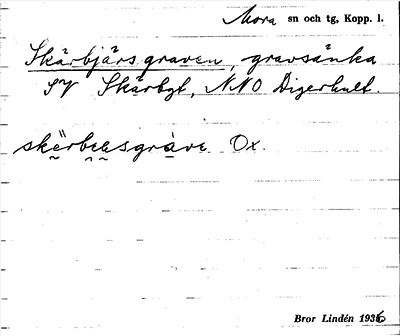 Mora sn och tg, Kopp. l.
Skärbjärsgraven, gravsänka
SV Skärbgt, NNO Digerhult.
skërbesgràve Ox.
Bror Lindén 1936